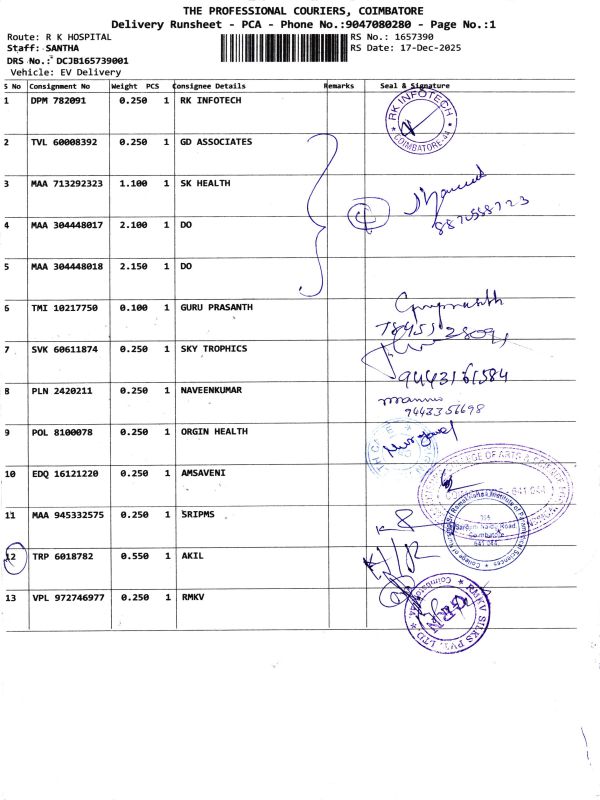 THE PROFESSIONAL COURIERS, COIMBATORE
Delivery Runsheet - PCA - Phone No.:9047080280 - Page No.:1
Route: R K HOSPITAL
RS No.: 1657390
Staff: SANTHA
RS Date: 17-Dec-2025
DRS No.: DCJB165739001
Vehicle: EV Delivery
S No Consignment No Weight PCS Consignee Details Remarks Seal & Signature
1 DPM 782091 0.250 1 RK INFOTECH
RK INFOTECH
COIMBATORE-44
2 TVL 60008392 0.250 1 GD ASSOCIATES
3 MAA 713292323 1.100 1 SK HEALTH
4 MAA 304448017 2.100 1 DO
5 MAA 304448018 2.150 1 DO
6 TMI 10217750 0.100 1 GURU PRASANTH
Guruprasath
7 SVK 60611874 0.250 1 SKY TROPHICS
9443161584
8 PLN 2420211 0.250 1 NAVEENKUMAR
7443356698
9 POL 8100078 0.250 1 ORGIN HEALTH
10 EDQ 16121220 0.250 1 AMSAVENI
COLLEGE OF ARTS &
641 044
11 MAA 945332575 0.250 1 SRIPMS
Institute of
395
Sarojini Naidu Road
Coimbatore
641 044
12 TRP 6018782 0.550 1 AKIL
13 VPL 972746977 0.250 1 RMKV
RMKV SILKS PVT. LTD
Coimbatore